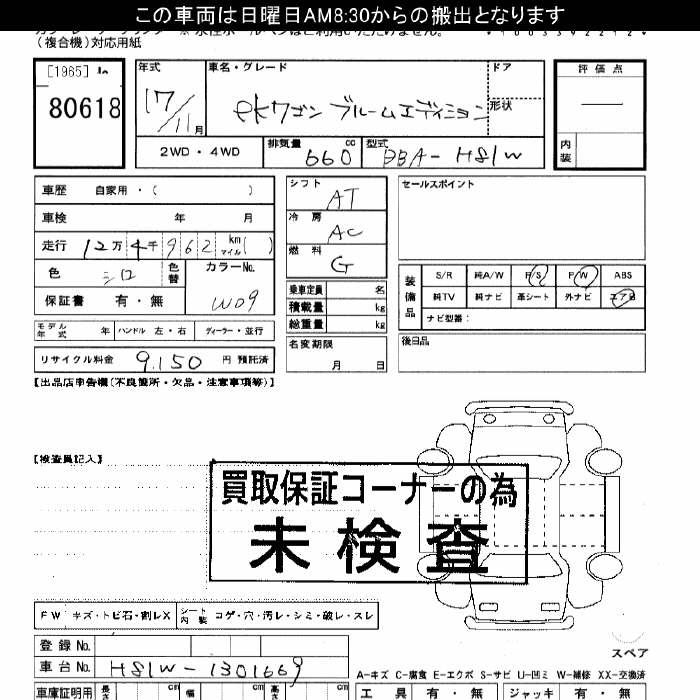 この車両は日曜日AM8:30からの搬出となります
(複合機)対応用紙
[1965]
80618
年式
17/11月
車名・グレード
ekワゴン ブルームエディション
ドア
形状
評価点
内装
2WD・4WD
排気量 660 cc
型式 DBA-H81W
車歴 自家用・( )
車検 年 月
走行 12万4千962 km マイル( )
色 シロ
色替
カラーNo. W09
保証書 有・無
モデル年式 年
ハンドル 左・右
ディーラー・並行
リサイクル料金 9,150 円 預託済
シフト AT
冷房 AC
燃料 G
乗車定員 名
積載量 kg
総重量 kg
名変期限
月 日
セールスポイント
装備品
S/R 純A/W P/S P/W ABS
純TV 純ナビ 革シート 外ナビ エアB
ナビ型番:
後日品
【出品店申告欄(不良箇所・欠品・注意事項等)】
【検査員記入】
買取保証コーナーの為
未検査
FW キズ・トビ石・割レX
シート内装 コゲ・穴・汚レ・シミ・破レ・スレ
登録No.
車台No. H81W-1301669
スペア
A-キズ C-腐食 E-エクボ S-サビ U-凹ミ W-補修 XX-交換済
車庫証明用 長さ cm 幅 cm 高さ cm
工具 有・無 ジャッキ 有・無